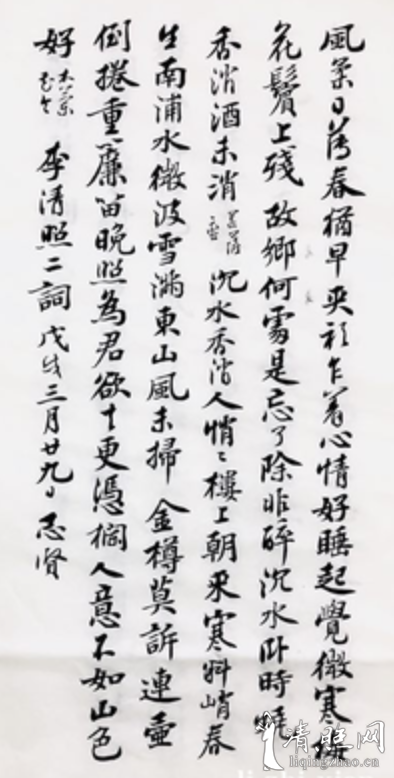 風柔日薄春猶早夾衫乍著心情好睡起覺微寒梅
花鬢上殘 故鄉何處是忘了除非醉沉水臥時燒
香消酒未消 菩薩蛮 沉水香消人悄〻樓上朝來寒料峭春
生南浦水微波雪滿東山風未掃 金樽莫訴連壺
倒捲重簾留晚照為君欲去更憑欄人意不如山色
好 木蘭花令 李清照二詞戊戌三月廿九日志贤
清照网
liqingzhao.cn